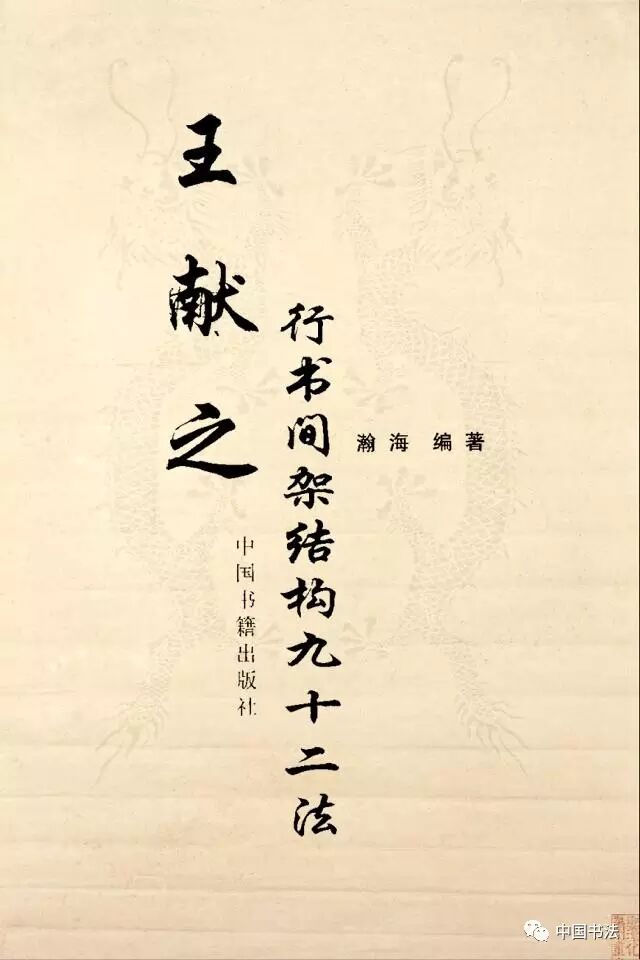 王献之
行书间架结构九十二法
瀚海 编著
中国书籍出版社
中国书法